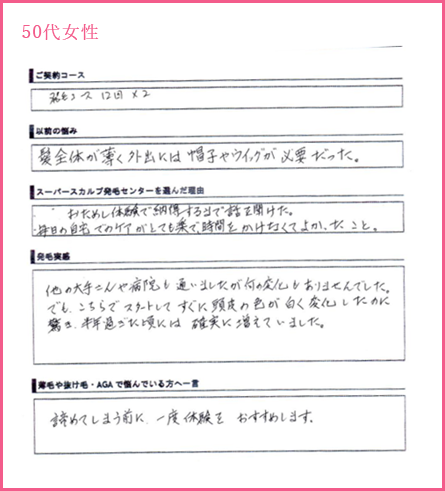 50代女性
ご契約コース
発毛コース 12回×2
以前の悩み
髪全体が薄く外出には帽子やウイッグが必要だった。
スーパースカルプ発毛センターを選んだ理由
おためし体験で納得するまで話を聞けた。
毎日の自宅でのケアがとても楽で、時間をかけなくてよかったこと。
発毛実感
他の大手さんや病院も通いましたが何の変化もありませんでした。
でも、こちらでスタートしてすぐに頭皮の色が白く変化したのに
驚き、半年過ぎた頃には確実に増えていました。
薄毛や抜け毛・AGAで悩んでいる方へ一言
諦めてしまう前に、一度体験を おすすめします。